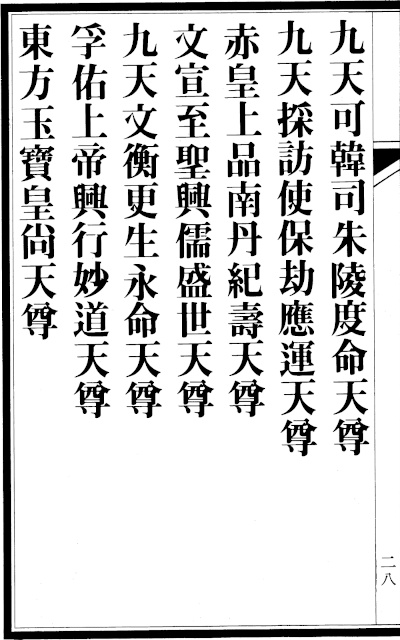 九天可韓司朱陵度命天尊
九天採訪使保劫應運天尊
赤皇上品南丹紀壽天尊
文宣至聖興儒盛世天尊
九天文衡更生永命天尊
孚佑上帝興行妙道天尊
東方玉寶皇尚天尊
二八